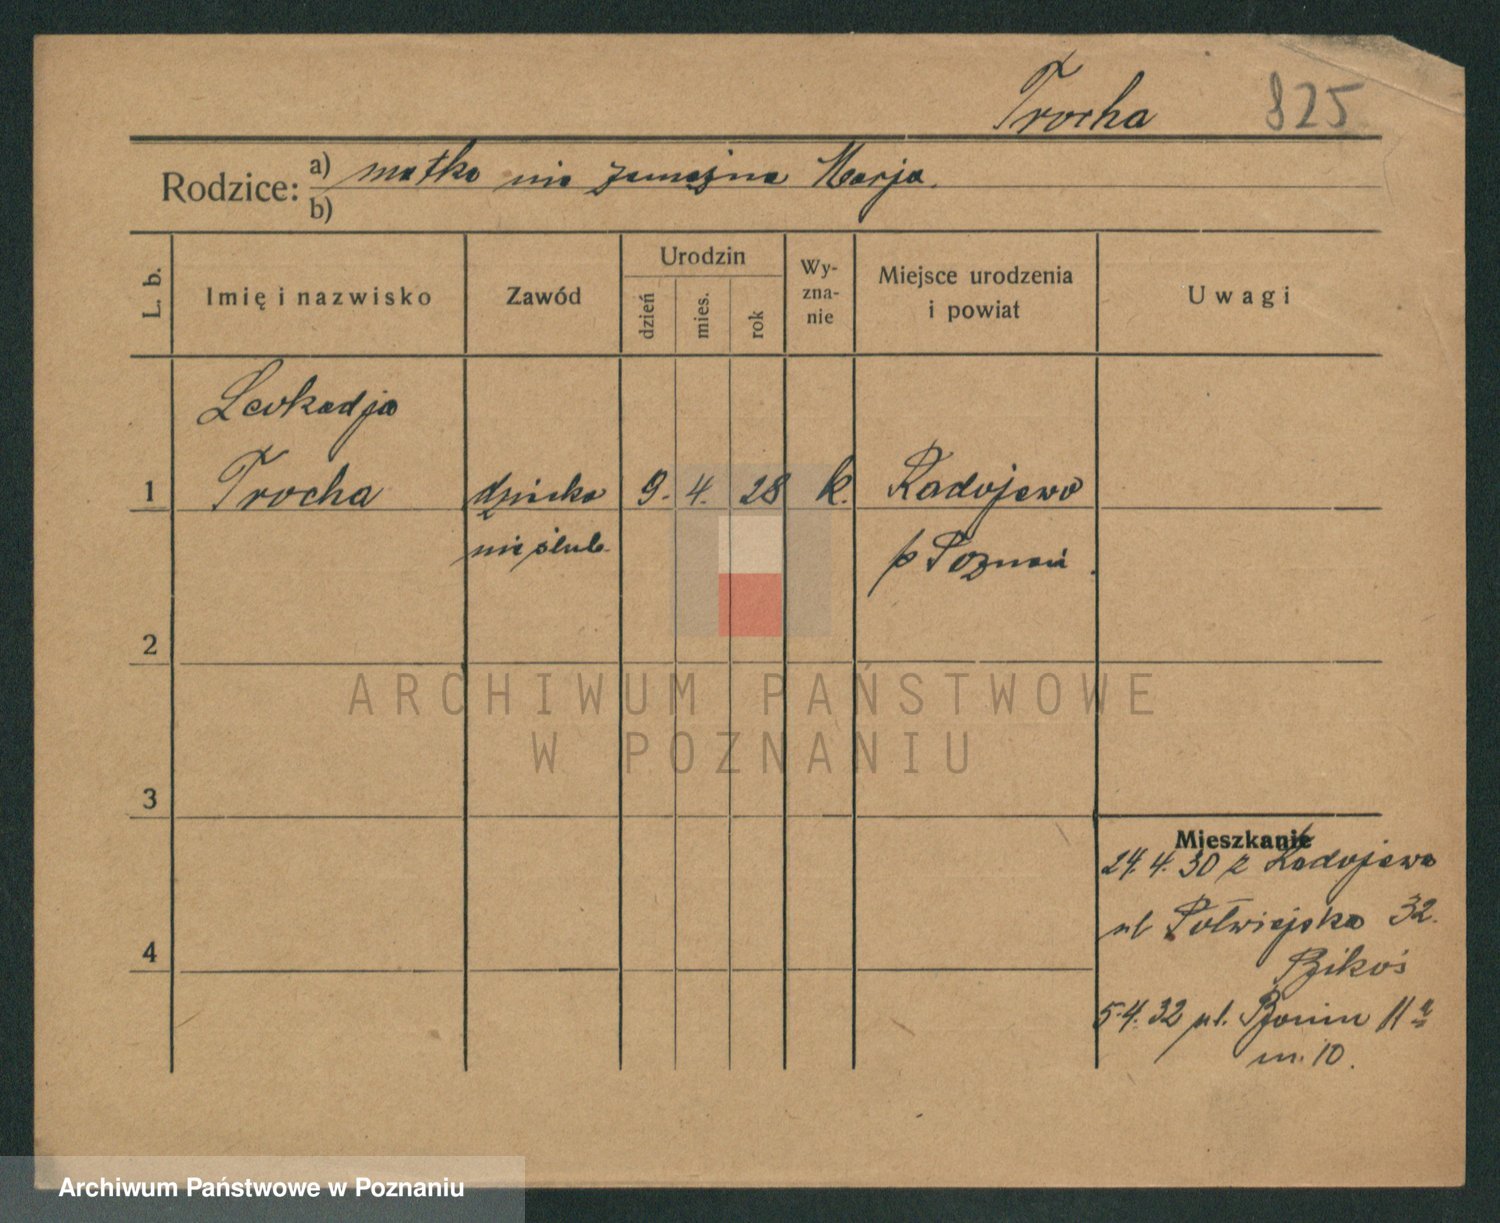 Trocha 825
Rodzice: a) matka nie zamężna Marja.
b)
L. b. Imię i nazwisko Zawód Urodzin dzień mies. rok Wy-zna-nie Miejsce urodzenia i powiat Uwagi
Leokadja
1 Trocha dziecko 9. 4. 28 k. Radojewo
nieślub. p Poznań.
2
ARCHIWUM PAŃSTWOWE
W POZNANIU
3
Mieszkanie
24. 4. 30 z Radojewa
ul Półwiejska 32.
5.4.32 ul. 11a
m. 10.
4
Archiwum Państwowe w Poznaniu